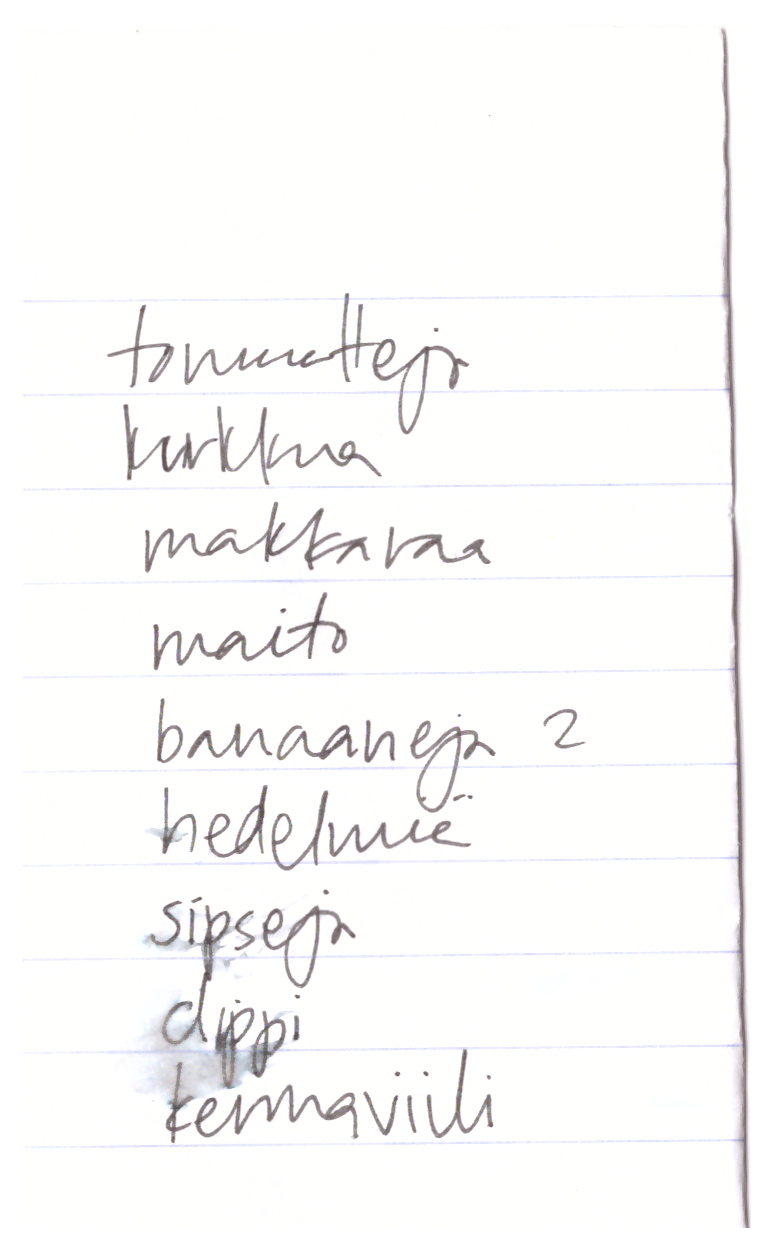 tomaatteja
kurkkua
makkaraa
maito
banaaneja 2
hedelmiä
sipsejä
dippi
kermaviili